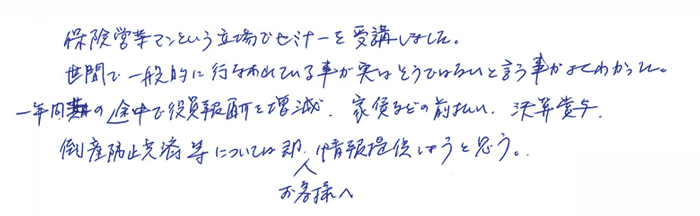 保険営業マンという立場でセミナーを受講しました。
世間で一般的に行なわれている事が実はそうではないと言う事がよくわかった。
一年間の途中で役員報酬を増減、家賃などの前払い、決算賞与、
倒産防止共済等については即、お客様へ情報提供しようと思う。